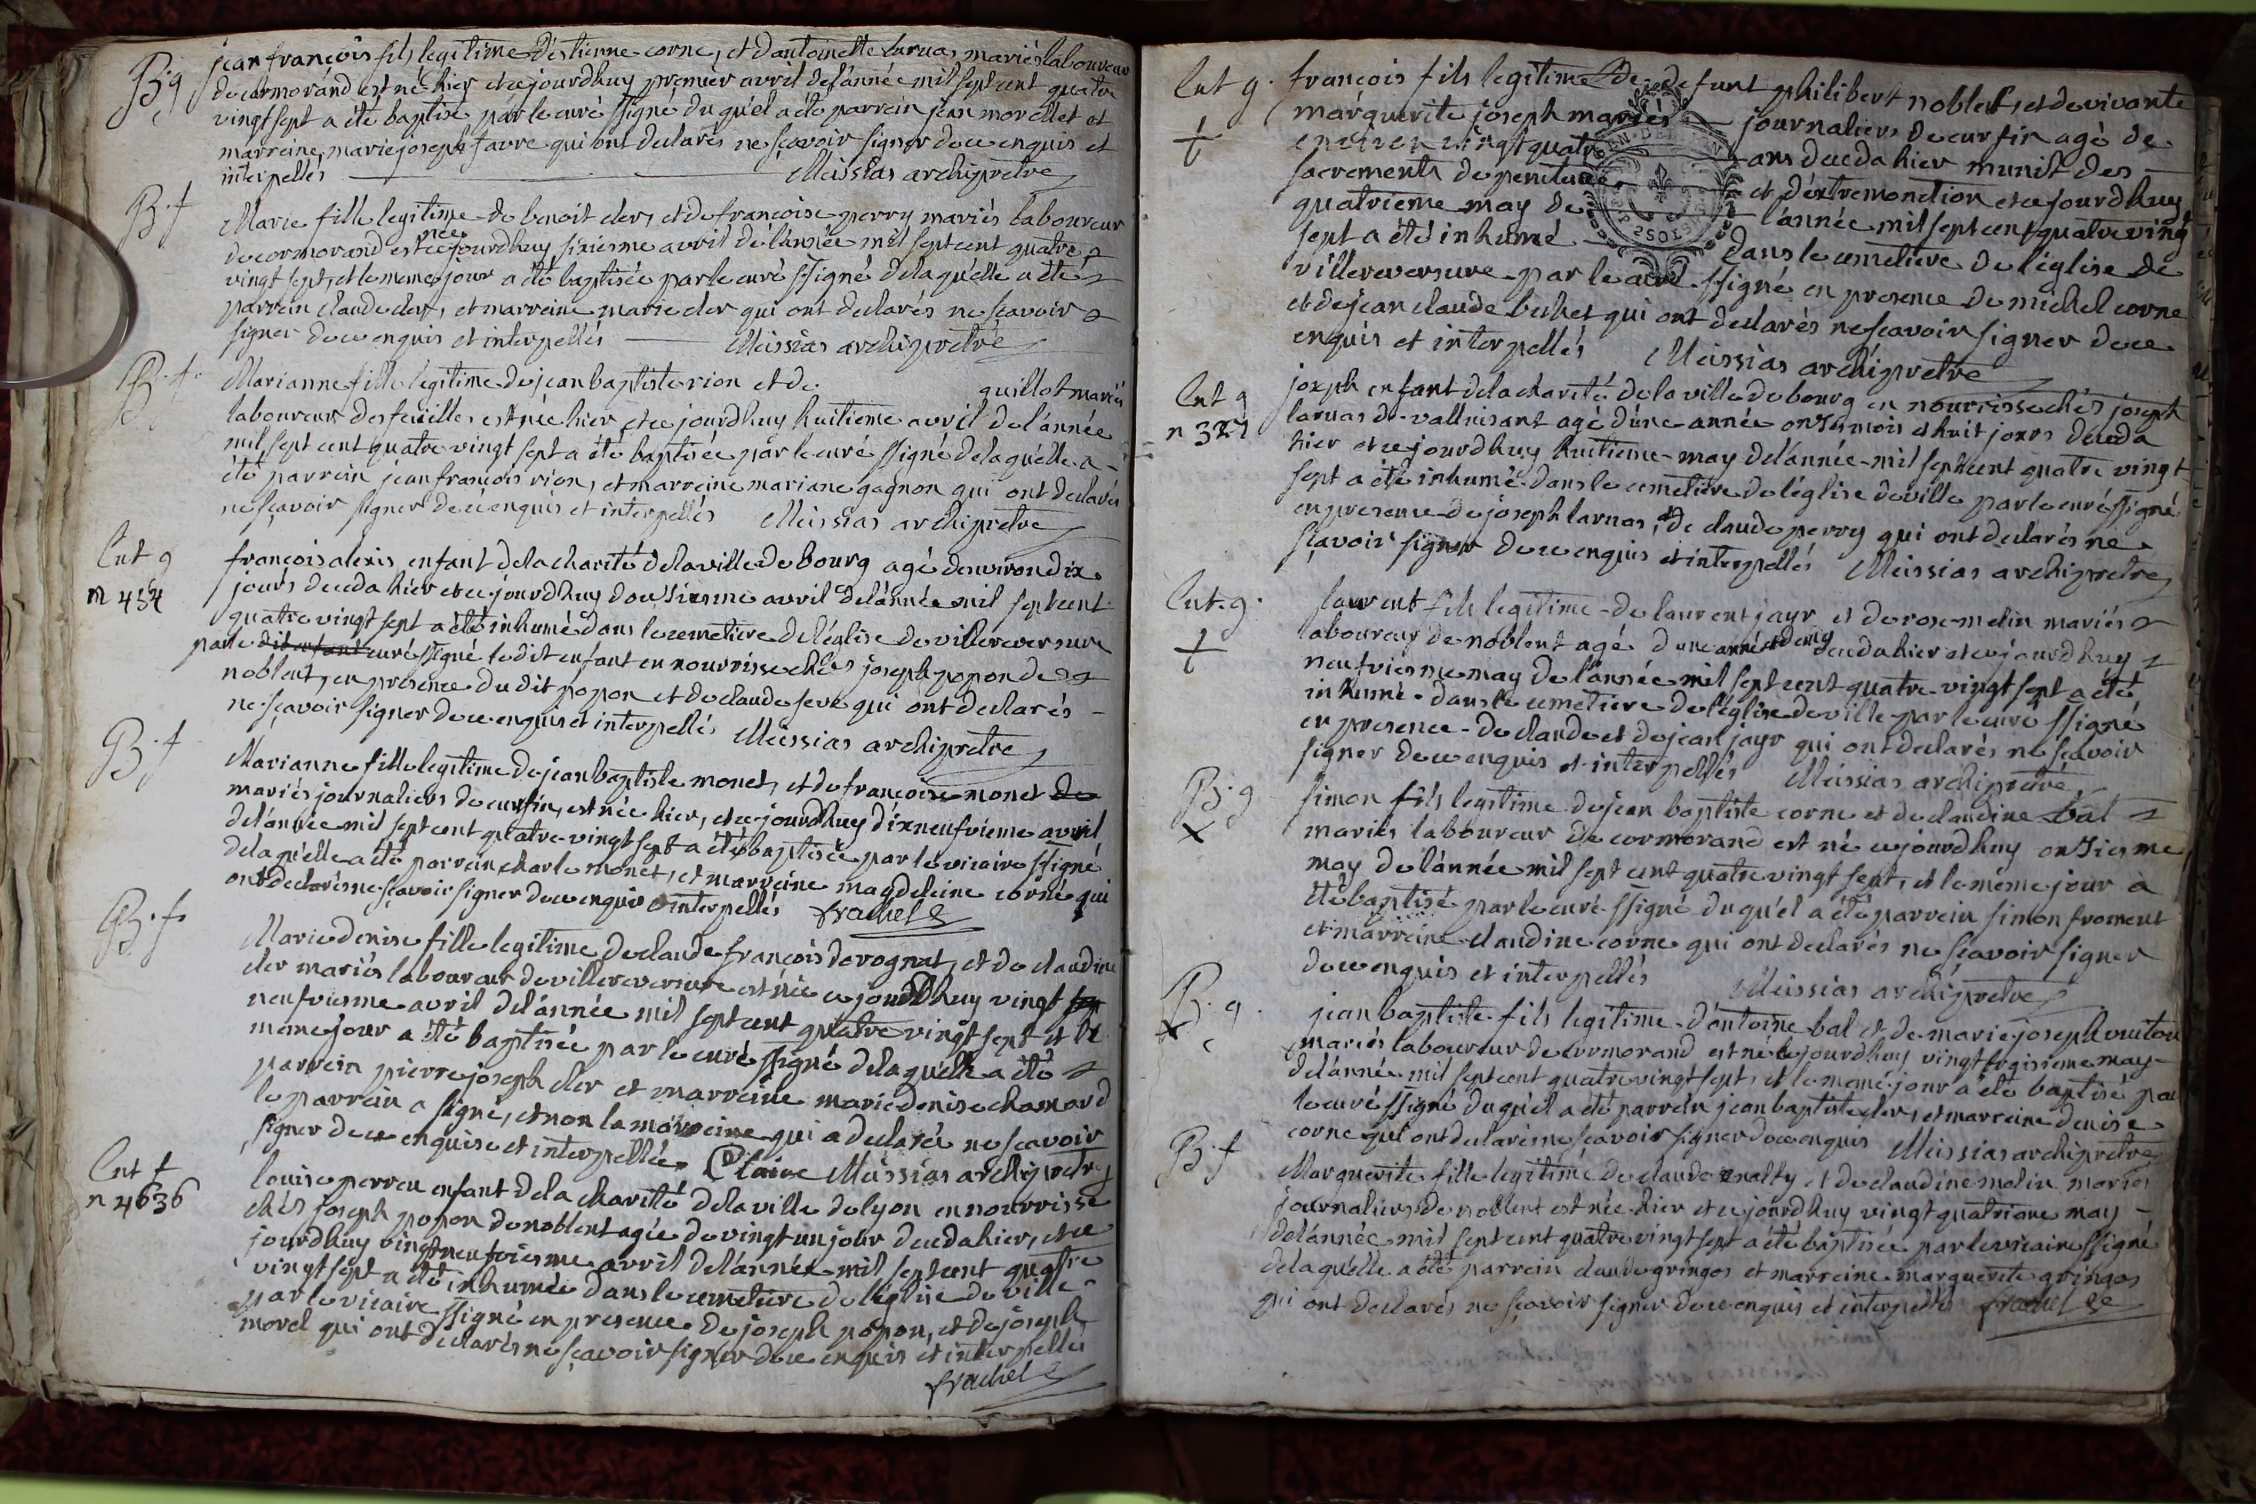 B. g
jean françois fils legitime d'estienne corne, et d'antoinette larnas mariés laboureur
de cormorand est né hier et ce jourdhuy premier avril de l'année mil sept cent quatre
vingt sept a été baptisé par le curé ssigné du quel a été parrein jean morellet et
marreine marie joseph favre qui ont declarés ne scavoir signer de ce enquis et
interpellés Meissias archipretre
B. f
Marie fille legitime de benoit cler, et de francoise perry mariés laboureur
de cormorand est née ce jourdhuy sixiesme avril de l'année mil sept cent quatre
vingt sept, et le meme jour a été baptisée par le curé ssigné de la quelle a été
parrein claude cler, et marreine marie cler qui ont declarés ne scavoir
signer de ce enquis et interpellés Meissias archiprêtre
B. f.
Marianne fille legitime de jean baptiste rion et de guillot mariés
laboureur des feuilles est née hier et ce jourdhuy huitieme avril de l'année
mil sept cent quatre vingt sept a été baptisée par le curé ssigné de la quelle a
été parrein jean françois rion, et marreine mariane gagnon qui ont declarés
ne sçavoir signer de ce enquis et interpellés Meissias archiprêtre
Ent g
n 454
françois alexis enfant de la charité de la ville de bourg agé d'environ dix
jours deceda hier et ce jourdhuy douziesme avril de l'année mil sept cent
quatre vingt sept a été inhumé dans le cemetiere de l'église de villereversure
par le curé ssigné le dit enfant en nourrisse chés joseph popon de
noblent, en presence du dit popon et de claude feve qui ont declarés
ne sçavoir signer de ce enquis et interpellés Meissias archiprêtre
B. f
Marianne fille legitime de jean baptiste monet, et de francoise monet de
mariés journaliers de curfin, est née hier, et ce jourdhuy dixneufvieme avril
de l'année mil sept cent quatre vingt sept a été baptisée par le vicaire ssigné
de la quelle a été parrein charle monet, et marreine magdeleine corne qui
ont declarés ne sçavoir signer de ce enquis et interpellés frachet
B. f
Marie denise fille legitime de claude françois derognat, et de claudine
cler mariés laboureur de villereversure est née ce jourdhuy vingt
neufviesme avril de l'année mil sept cent quatre vingt sept et le
meme jour a été baptisée par le curé ssigné de la quelle a été
parrein pierre joseph cler et marreine marie denise chamard
le parrein a signé, et non la marreine qui a declaré ne scavoir
signer de ce enquise et interpellée. Claire Meissias archiprêtre
Ent f
n 4636
louise perreu enfant de la charité de la ville de lyon en nourrisse
chés joseph popon de noblent agée de vingt un jour deceda hier, et ce
jourdhuy vingt neufviesme avril de l'année mil sept cent quatre
vingt sept a été inhumée dans le cemetiere de l'église de ville
par le vicaire ssigné en presence de joseph popon, et de joseph
morel qui ont declarés ne sçavoir signer de ce enquis et interpellés
frachet
Ent g.
françois fils legitime de defunt philibert noblet, et de vivante
marguerite joseph mariés journaliers de curfin agé de
environ vingt quatre ans deceda hier munit des
sacrements de penitence et d'extremonction et ce jourdhuy
quatrieme may de l'année mil sept cent quatre vingt
sept a été inhumé dans le cemetiere de l'église de
villereversure par le curé ssigné en presence de michel corne
et de jean claude bechet qui ont declarés ne scavoir signer de ce
enquis et interpellés Meissias archiprêtre
Ent g
n 327
joseph enfant de la charité de la ville de bourg en nourrisse chés joseph
larnas de vallnisant agé d'une année onze mois et huit jours deceda
hier et ce jourdhuy huitieme may de l'année mil sept cent quatre vingt
sept a été inhumé dans le cemetiere de l'église de ville par le curé ssigné
en presence de joseph larnas, et de claude perry qui ont declarés ne
sçavoir signer de ce enquis, et interpellés Meissias archiprêtre
Ent. g.
laurent fils legitime de laurent jayr et de rose melin mariés
laboureur de noblent agé d'une année et demy deceda hier et ce jourdhuy
neufviesme may de l'année mil sept cent quatre vingt sept a été
inhumé dans le cemetiere de l'église de ville par le curé ssigné
en presence de claude et de jean jayr qui ont declarés ne scavoir
signer de ce enquis et interpellés Meissias archiprêtre
B. g
simon fils legitime de jean baptiste corne et de claudine bal
mariés laboureur de cormorand est né ce jourdhuy onziesme
may de l'année mil sept cent quatre vingt sept, et le même jour a
été baptisé par le curé ssigné du quel a été parrein simon froment
et marreine claudine corne qui ont declarés ne sçavoir signer
de ce enquis et interpellés Meissias archiprêtre
B. g.
jean baptiste fils legitime d'antoine bal et de marie joseph
mariés laboureur de cormorand est né ce jourdhuy vingt troisieme may
de l'année mil sept cent quatre vingt sept, et le meme jour a été baptisé par
le curé ssigné du quel a été parrein jean baptiste cler, et marreine denise
corne qui ont declarés ne scavoir signer de ce enquis Meissias archiprêtre
B. f
Marguerite fille legitime de claude et de claudine melin mariés
journaliers de noblent est née hier et ce jourdhuy vingt quatrieme may
de l'année mil sept cent quatre vingt sept a été baptisée par le vicaire ssigné
de la quelle a été parrein claude gringos et marreine marguerite gringos
qui ont declarés ne sçavoir signer de ce enquis et interpellés frachet